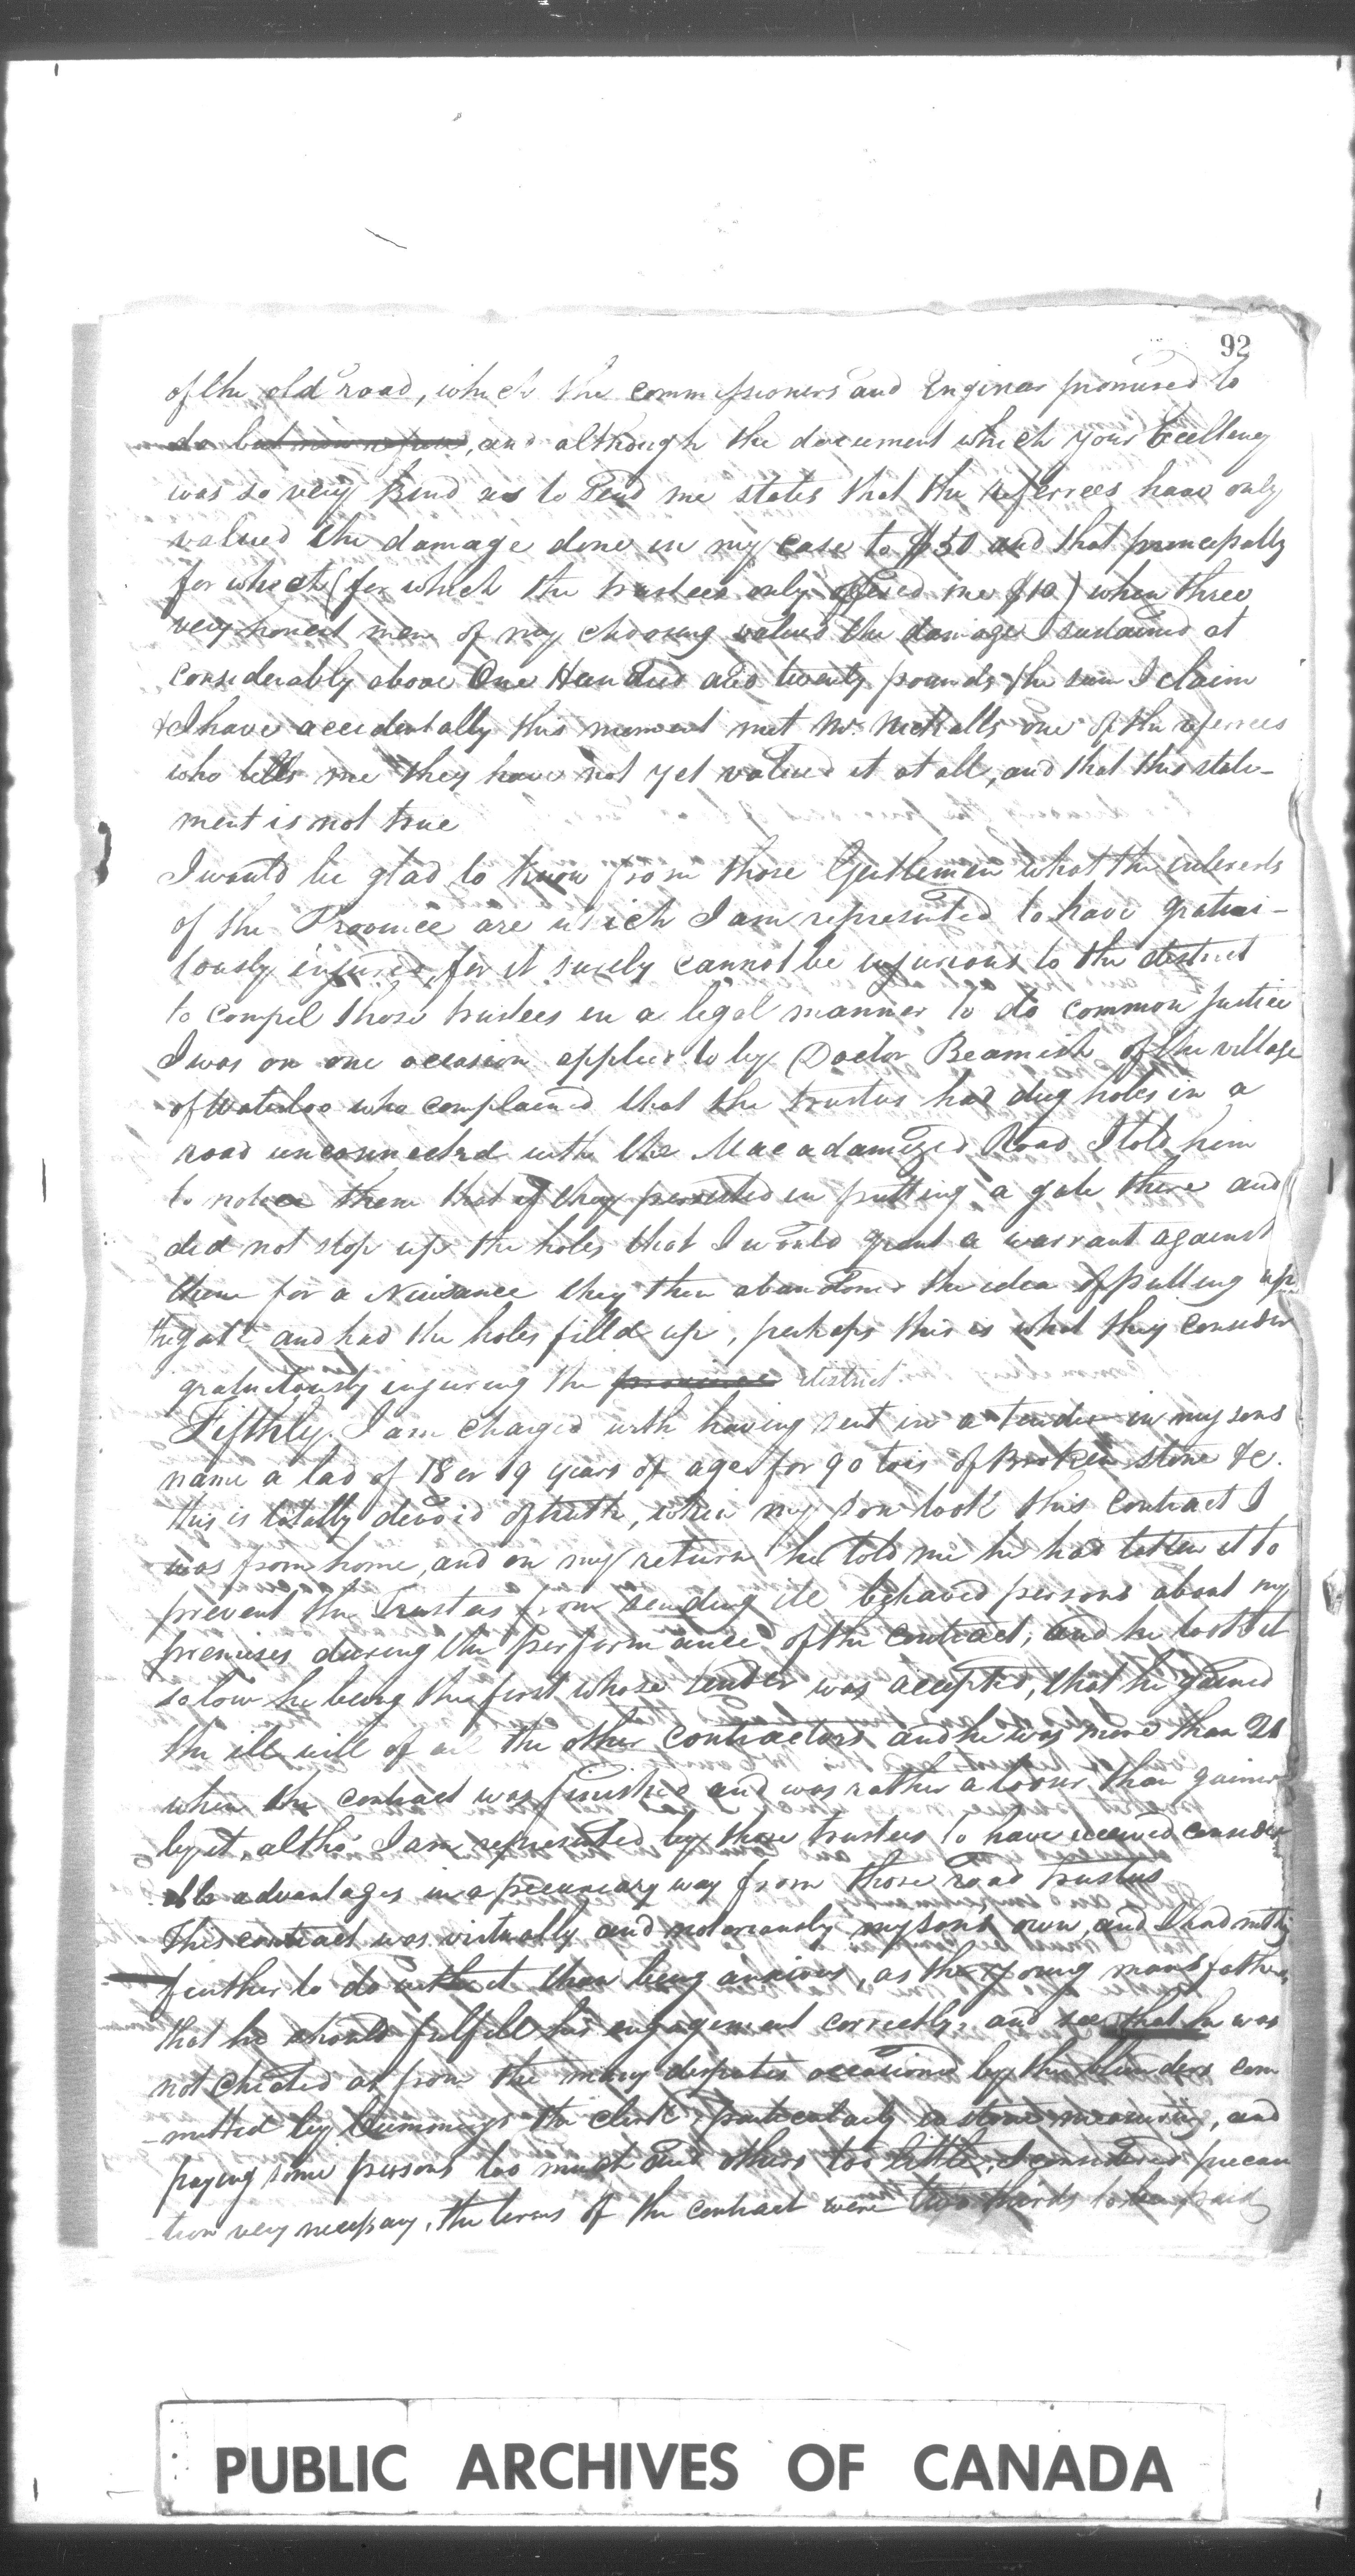 92
of the old road, which the commissioners and Enginear promised to
do but now refuse, and although the document which your Excellency
was so very kind as to Send me states that the referrees have only
valued the damage done in my case to $50 and that principally
for which (for which the trustees only offered me $10) when three
very honest men of my choosing valued the damage I sustained at
considerably above One Hundred and twenty pounds the sum I claim
& I have accidentally this moment met Mr. one of the referrees
who tells me they have not yet valued it at all, and that this state-
ment is not true
I would be glad to know from those Gentlemen what the interests
of the Province are which I am represented to have gratui-
tously injured, for it surely cannot be injurious to the district
to compel those trustees in a legal manner to do common justice
I was on one occasion applied to by Doctor Beamish of the village
of Waterloo who complained that the trustees had dug holes in a
road unconnected with the Macadamized Road I told him
to notice them that if they persisted in putting a gate there and
did not stop up the holes that I would grant a warrant against
them for a Nuisance they then abandoned the idea of putting up
the gate and had the holes filld up, perhaps this is what they consider
gratuitously injuring the province district
Fifthly. I am charged with having sent in a tender in my sons
name a lad of 18 or 19 years of age for 90 tois of Broken stone &c.
this is totally devoid of truth, when my son took this contract I
was from home, and on my return he told me he had taken it to
prevent the Trustees from sending ill behaved persons about my
premises during the performance of the contract, and he took it
so low he being the first whose tender was accepted, that he gained
the ill will of all the other contractors and he was more than 21
when the contract was finished and was rather a looser than gainer
by it, altho' I am represented by those trustees to have received consider
able advantages in a pecuniary way from those road trustees
This contract was virtually and notoriously my sons own, and I had nothg
further to do with it than being anxious, as the young mans father,
that he should fulfill his engagement correctly, and see that he was
not cheated as from the many disputes occasioned by the blunders com
-mitted by Cummings the clerk, particularly in stone measuring, and
paying some persons too much and others too little, I considered precau
-tion very necessary, the terms of the contract were two thirds to be paid
PUBLIC ARCHIVES OF CANADA